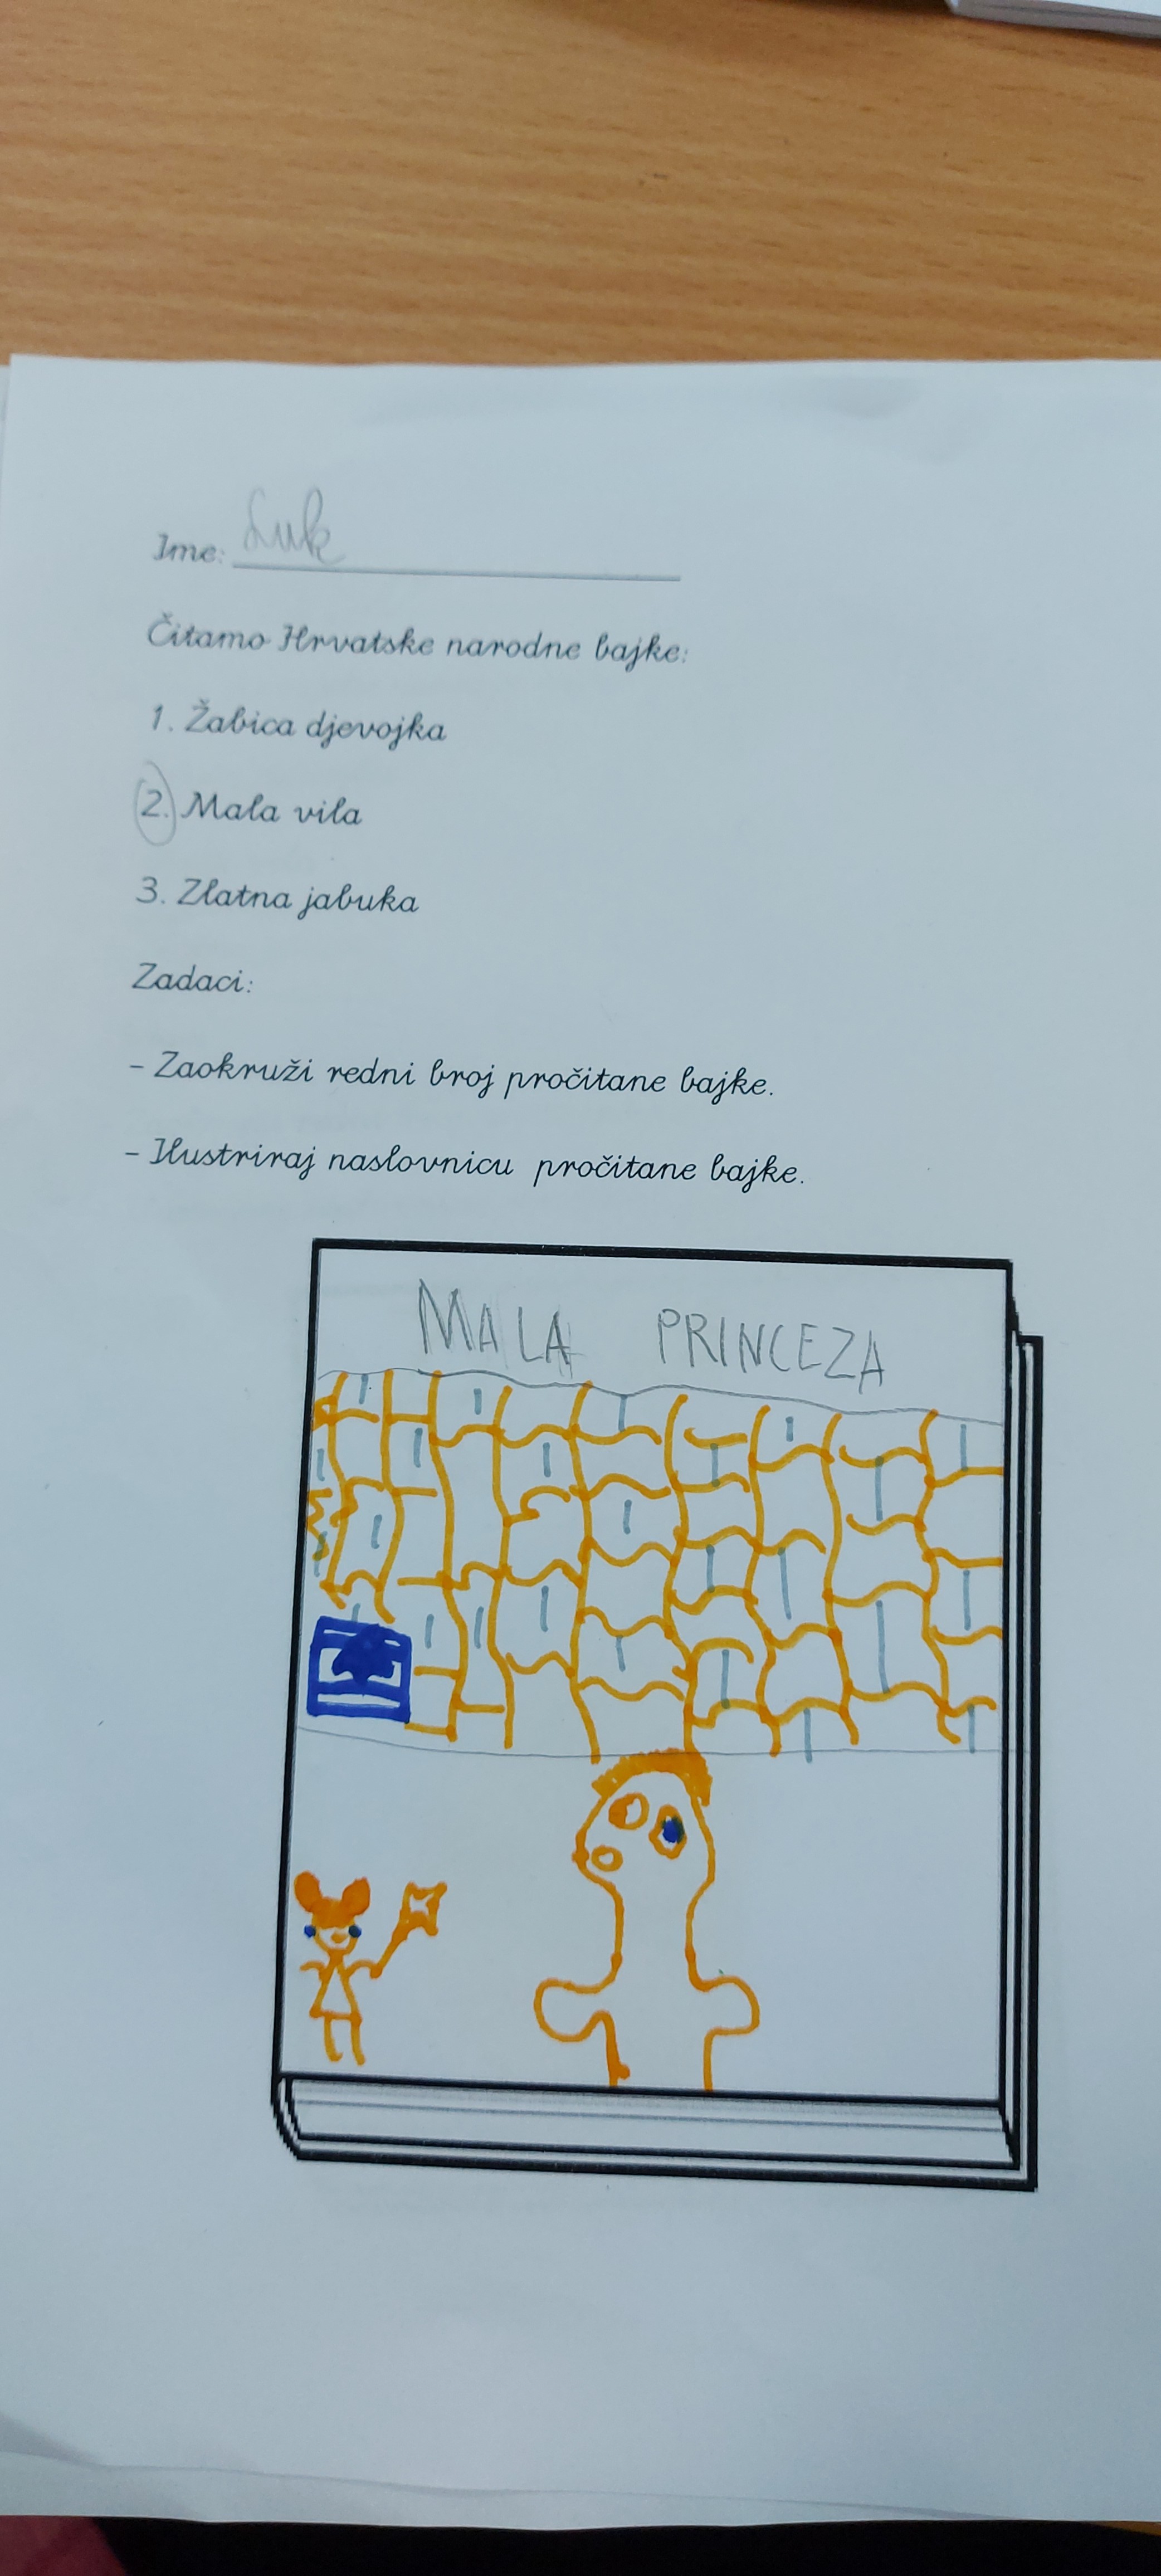 Ime: Luk
Čitamo Hrvatske narodne bajke:
1. Žabica djevojka
2. Mala vila
3. Zlatna jabuka
Zadaci:
- Zaokruži redni broj pročitane bajke.
- Ilustriraj naslovnicu pročitane bajke.
MALA PRINCEZA